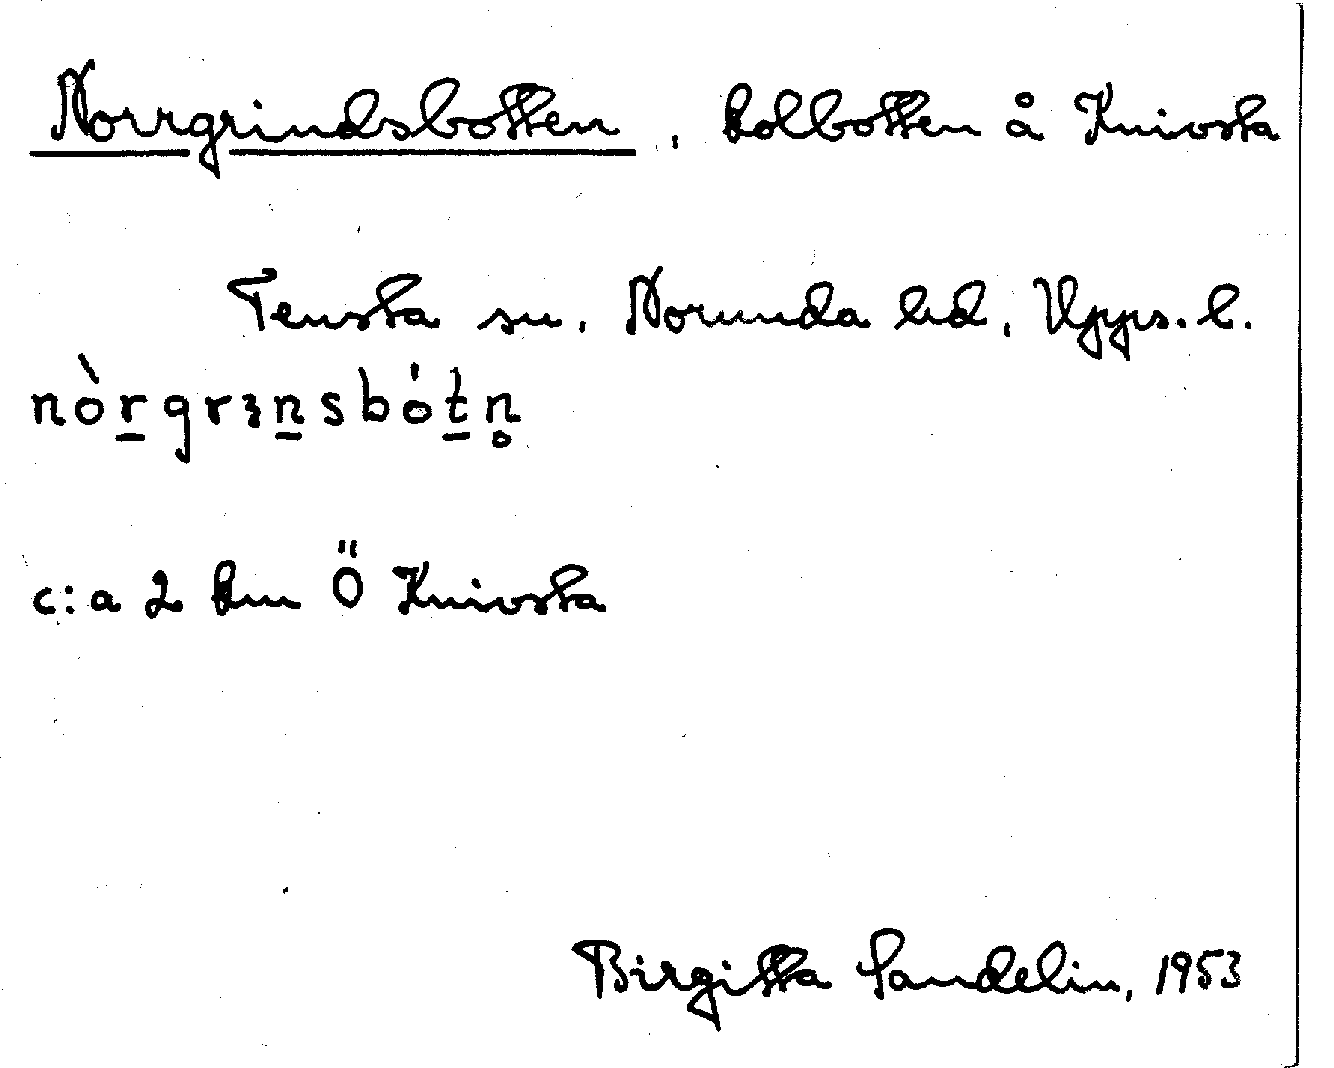 Norrgrindsbotten, kolbotten å Knivsta
Tensta sn. Norunda hd, Upps. l.
nòr̲grɜn̲sbót̲n̥
c:a 2 km Ö Knivsta
Birgitta Sandelin, 1953